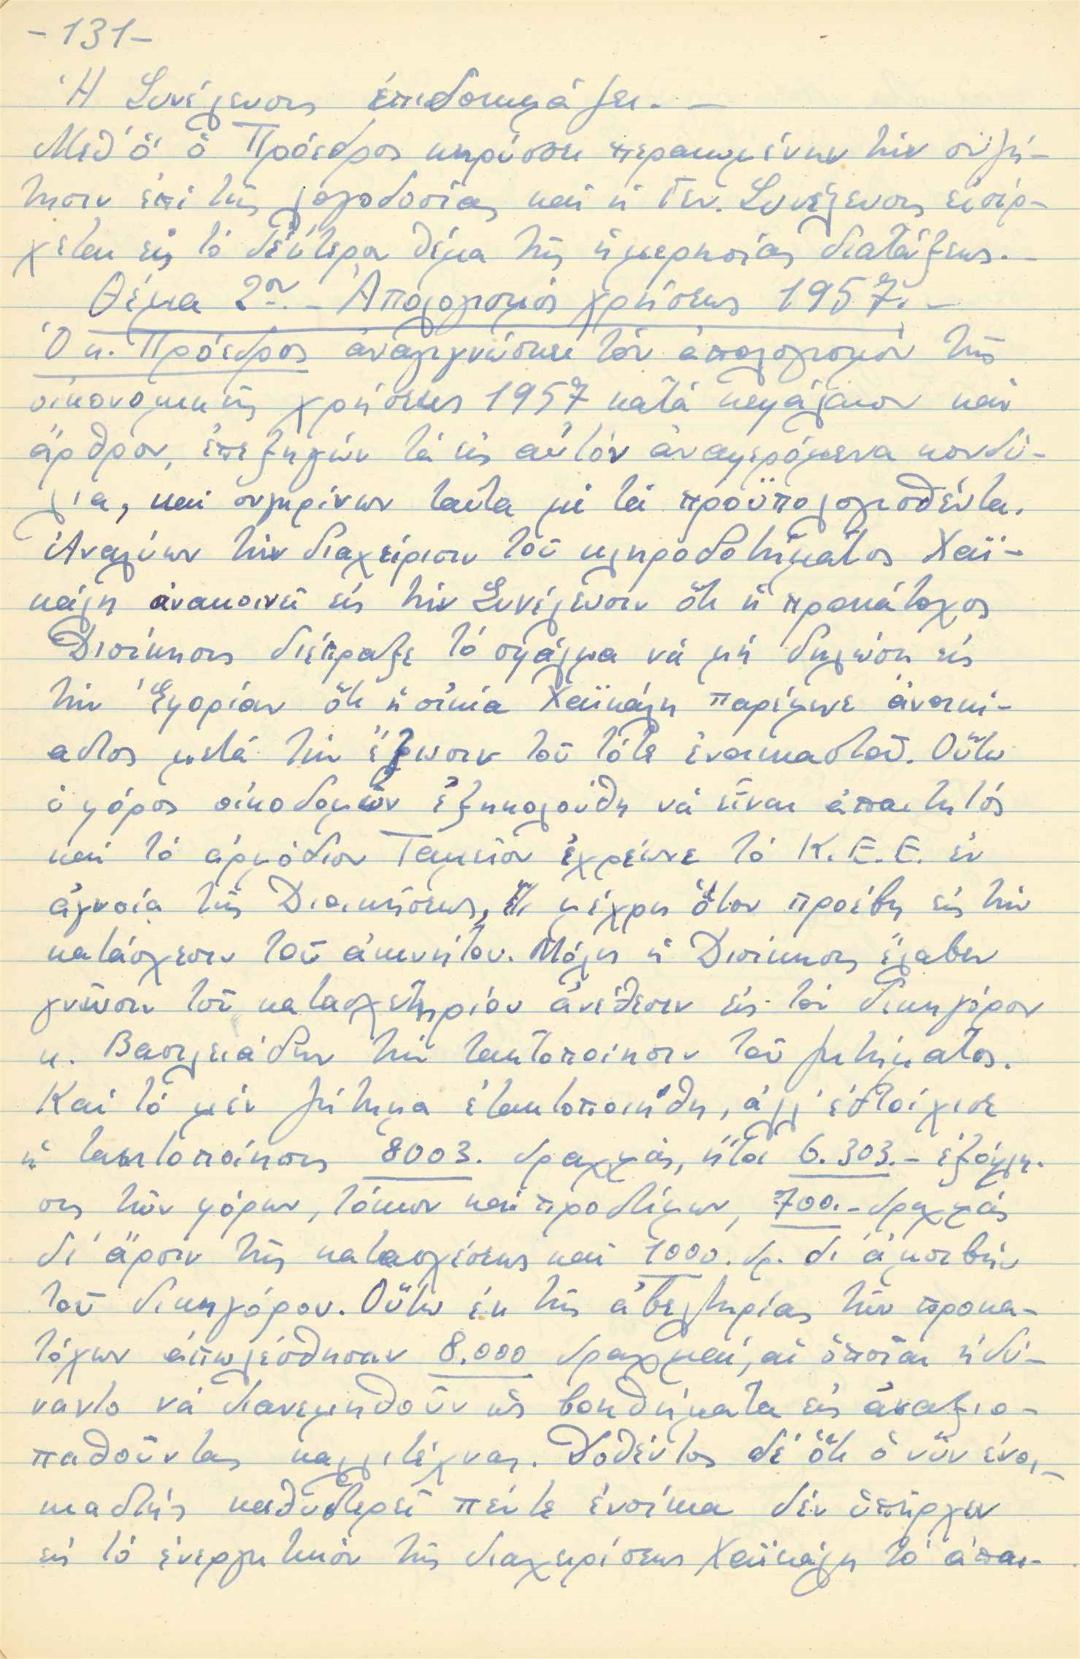 -131-
Ἡ Συνέλευσις ἐπιδοκιμάζει. -
Μεθ' ὅ ὁ Πρόεδρος κηρύσσει περαιωμένην τὴν συζή-
τησιν ἐπὶ τῆς λογοδοσίας καὶ ἡ Γεν. Συνέλευσις εἰσέρ-
χεται εἰς τὸ δεύτερο θέμα τῆς ἡμερησίας διατάξεως. -
Θέμα 2ον - Ἀπολογισμὸς χρήσεως 1957. -
Ὁ κ. Πρόεδρος ἀναγιγνώσκει τὸν ἀπολογισμὸν τῆς
οἰκονομικῆς χρήσεως 1957 κατὰ κεφάλαιον καὶ
ἄρθρον, ἐπεξηγῶν τὰ εἰς αὐτὸν ἀναφερόμενα κονδύ-
λια, καὶ συγκρίνων ταῦτα μὲ τὰ προϋπολογισθέντα.
Ἀναλύων τὴν διαχείρισιν τοῦ κληροδοτήματος Χαϊ-
κάλη ἀνακοινεῖ εἰς τὴν Συνέλευσιν ὅτι ἡ προκάτοχος
Διοίκησις διέπραξε τὸ σφάλμα νὰ μὴ δηλώσῃ εἰς
τὴν Ἐφορίαν ὅτι ἡ οἰκία Χαϊκάλη παρέμεινε ἀνοικί-
αστος μετὰ τὴν ἔξωσιν τοῦ τότε ἐνοικιαστοῦ. Οὕτω
ὁ φόρος οἰκοδομῶν ἐξηκολούθη νὰ εἶναι ἀπαιτητός
καὶ τὸ ἁρμόδιον Ταμεῖον ἐχρέωνε τὸ Κ.Ε.Ε. ἐν
ἀγνοίᾳ τῆς Διοικήσεως, μέχρι ὅτου προέβη εἰς τὴν
κατάσχεσιν τοῦ ἀκινήτου. Μόλις ἡ Διοίκησις ἔλαβεν
γνῶσιν τοῦ κατασχετηρίου ἀνέθεσεν εἰς τὸν δικηγόρον
κ. Βασιλειάδην τὴν τακτοποίησιν τοῦ ζητήματος.
Καὶ τὸ μὲν ζήτημα ἐτακτοποιήθη, ἀλλ' ἐστοίχισε
ἡ τακτοποίησις 8003. δραχμάς, ἤτοι 6.303.- ἐξόφλη-
σις τῶν φόρων, τόκων καὶ προστίμων, 700.- δραχμὰς
δι' ἄρσιν τῆς κατασχέσεως καὶ 1000. δρ. δι' ἀμοιβὴν
τοῦ δικηγόρου. Οὕτω ἐκ τῆς ἀβελτηρίας τῶν προκα-
τόχων ἀπωλέσθησαν 8.000 δραχμαί, αἱ ὁποῖαι ἠδύ-
ναντο νὰ διανεμηθοῦν ὡς βοηθήματα εἰς ἀναξιο-
παθοῦντας καλλιτέχνας. Δοθέντος δὲ ὅτι ὁ νῦν ἐνοι-
κιαστὴς καθυστερεῖ πέντε ἐνοίκια δὲν ὑπῆρχεν
εἰς τὸ ἐνεργητικὸν τῆς διαχειρίσεως Χαϊκάλη τὸ ἀπαι-